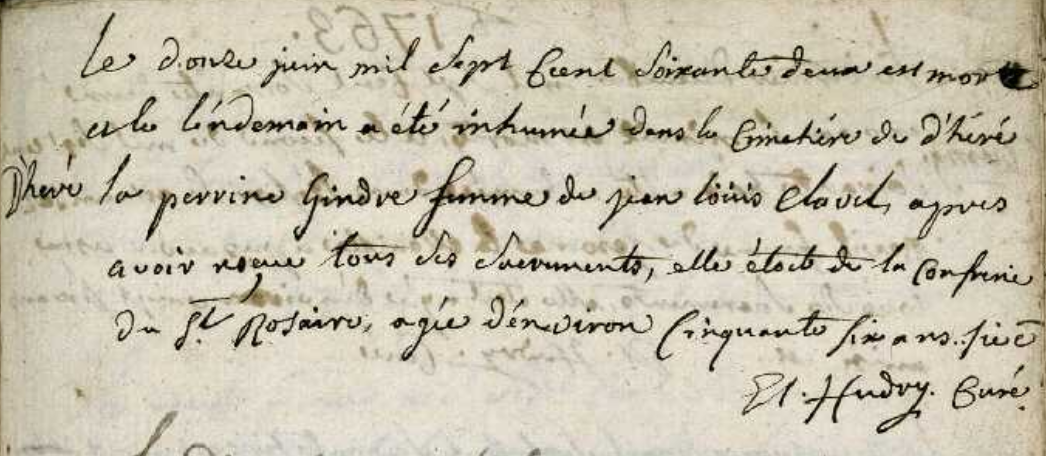 le douze juin mil sept Cent soixante deux est morte
et le lendemain a été inhumée dans le Cimetiére de d'héré
D'heré la perrine Gindre femme de jean loüis Clavel, apres
avoir reçue tous ses sacrements, elle étoit de la Confrerie
du St. Rosaire, agée d'environ Cinquante six ans.
Hudry. Curé.